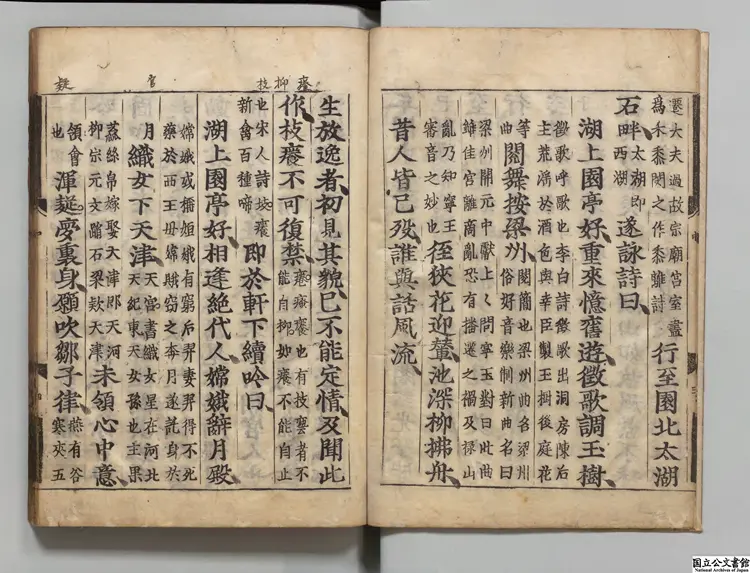 遷大夫過故宗廟宮室盡
爲禾黍閔之作黍離詩
行至園北太湖
石畔
太湖即
西湖
遂詠詩曰
湖上園亭好重來憶舊遊徵歌調玉樹
徵歌呼歌也李白詩徵歌出洞房陳后
主荒淫於酒色與幸臣製玉樹後庭花
等
曲
閱舞按梁州
閱簡也梁州曲名梁州
俗好音樂制新曲名曰
梁州開元中獻上〻問寧王對曰此曲
雖佳宮離商亂恐有播遷之禍及祿山
亂乃知寧王
審音之妙也
徑狹花迎輦池深柳拂舟
昔人皆已歿誰與話風流
癢
抑
技
生放逸者初見其貌已不能定情及聞此
作技癢不可復禁
癢膚癢也有技藝者不
能自抑如癢不能自止
也宋人詩技癢
新禽百種啼
即於軒下續吟曰
湖上園亭好相逢絶代人嫦娥辭月殿
官
嫦娥或稱姮娥有窮后羿妻羿得不死
藥於西王母嫦娥竊之奔月遂託身於
月
織女下天津
天官書織女星在河北
天紀東天女孫也主果
蓏絲帛嫁娶天津即天河
柳宗元文蹋石梁欵天津
未領心中意
疑
領會
也
渾疑夢裏身願吹鄒子律
燕有谷
寒爽五
国立公文書館
National Archives of Japan